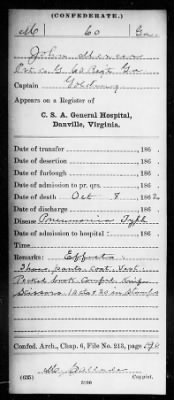 (CONFEDERATE.)
M 60 Ga
Pvt. Co. G, 60 Regt. Ga
Captain
Appears on a Register of
C. S. A. General Hospital,
Danville, Virginia.
Date of transfer 186 .
Date of desertion 186 .
Date of furlough 186 .
Date of admission to pr. qrs. 186 .
Date of death Oct 8 , 1862
Date of discharge 186 .
Disease Pneumonia Typh
Date of admission to hospital 186 .
Time
Remarks: Effects:
Shoes, pants, coat, vest,
Pocket book Comfed
Scissors 10 cts & 20 in stamps
Confed. Arch., Chap. 6, File No. 213, page
(635) Copyist.